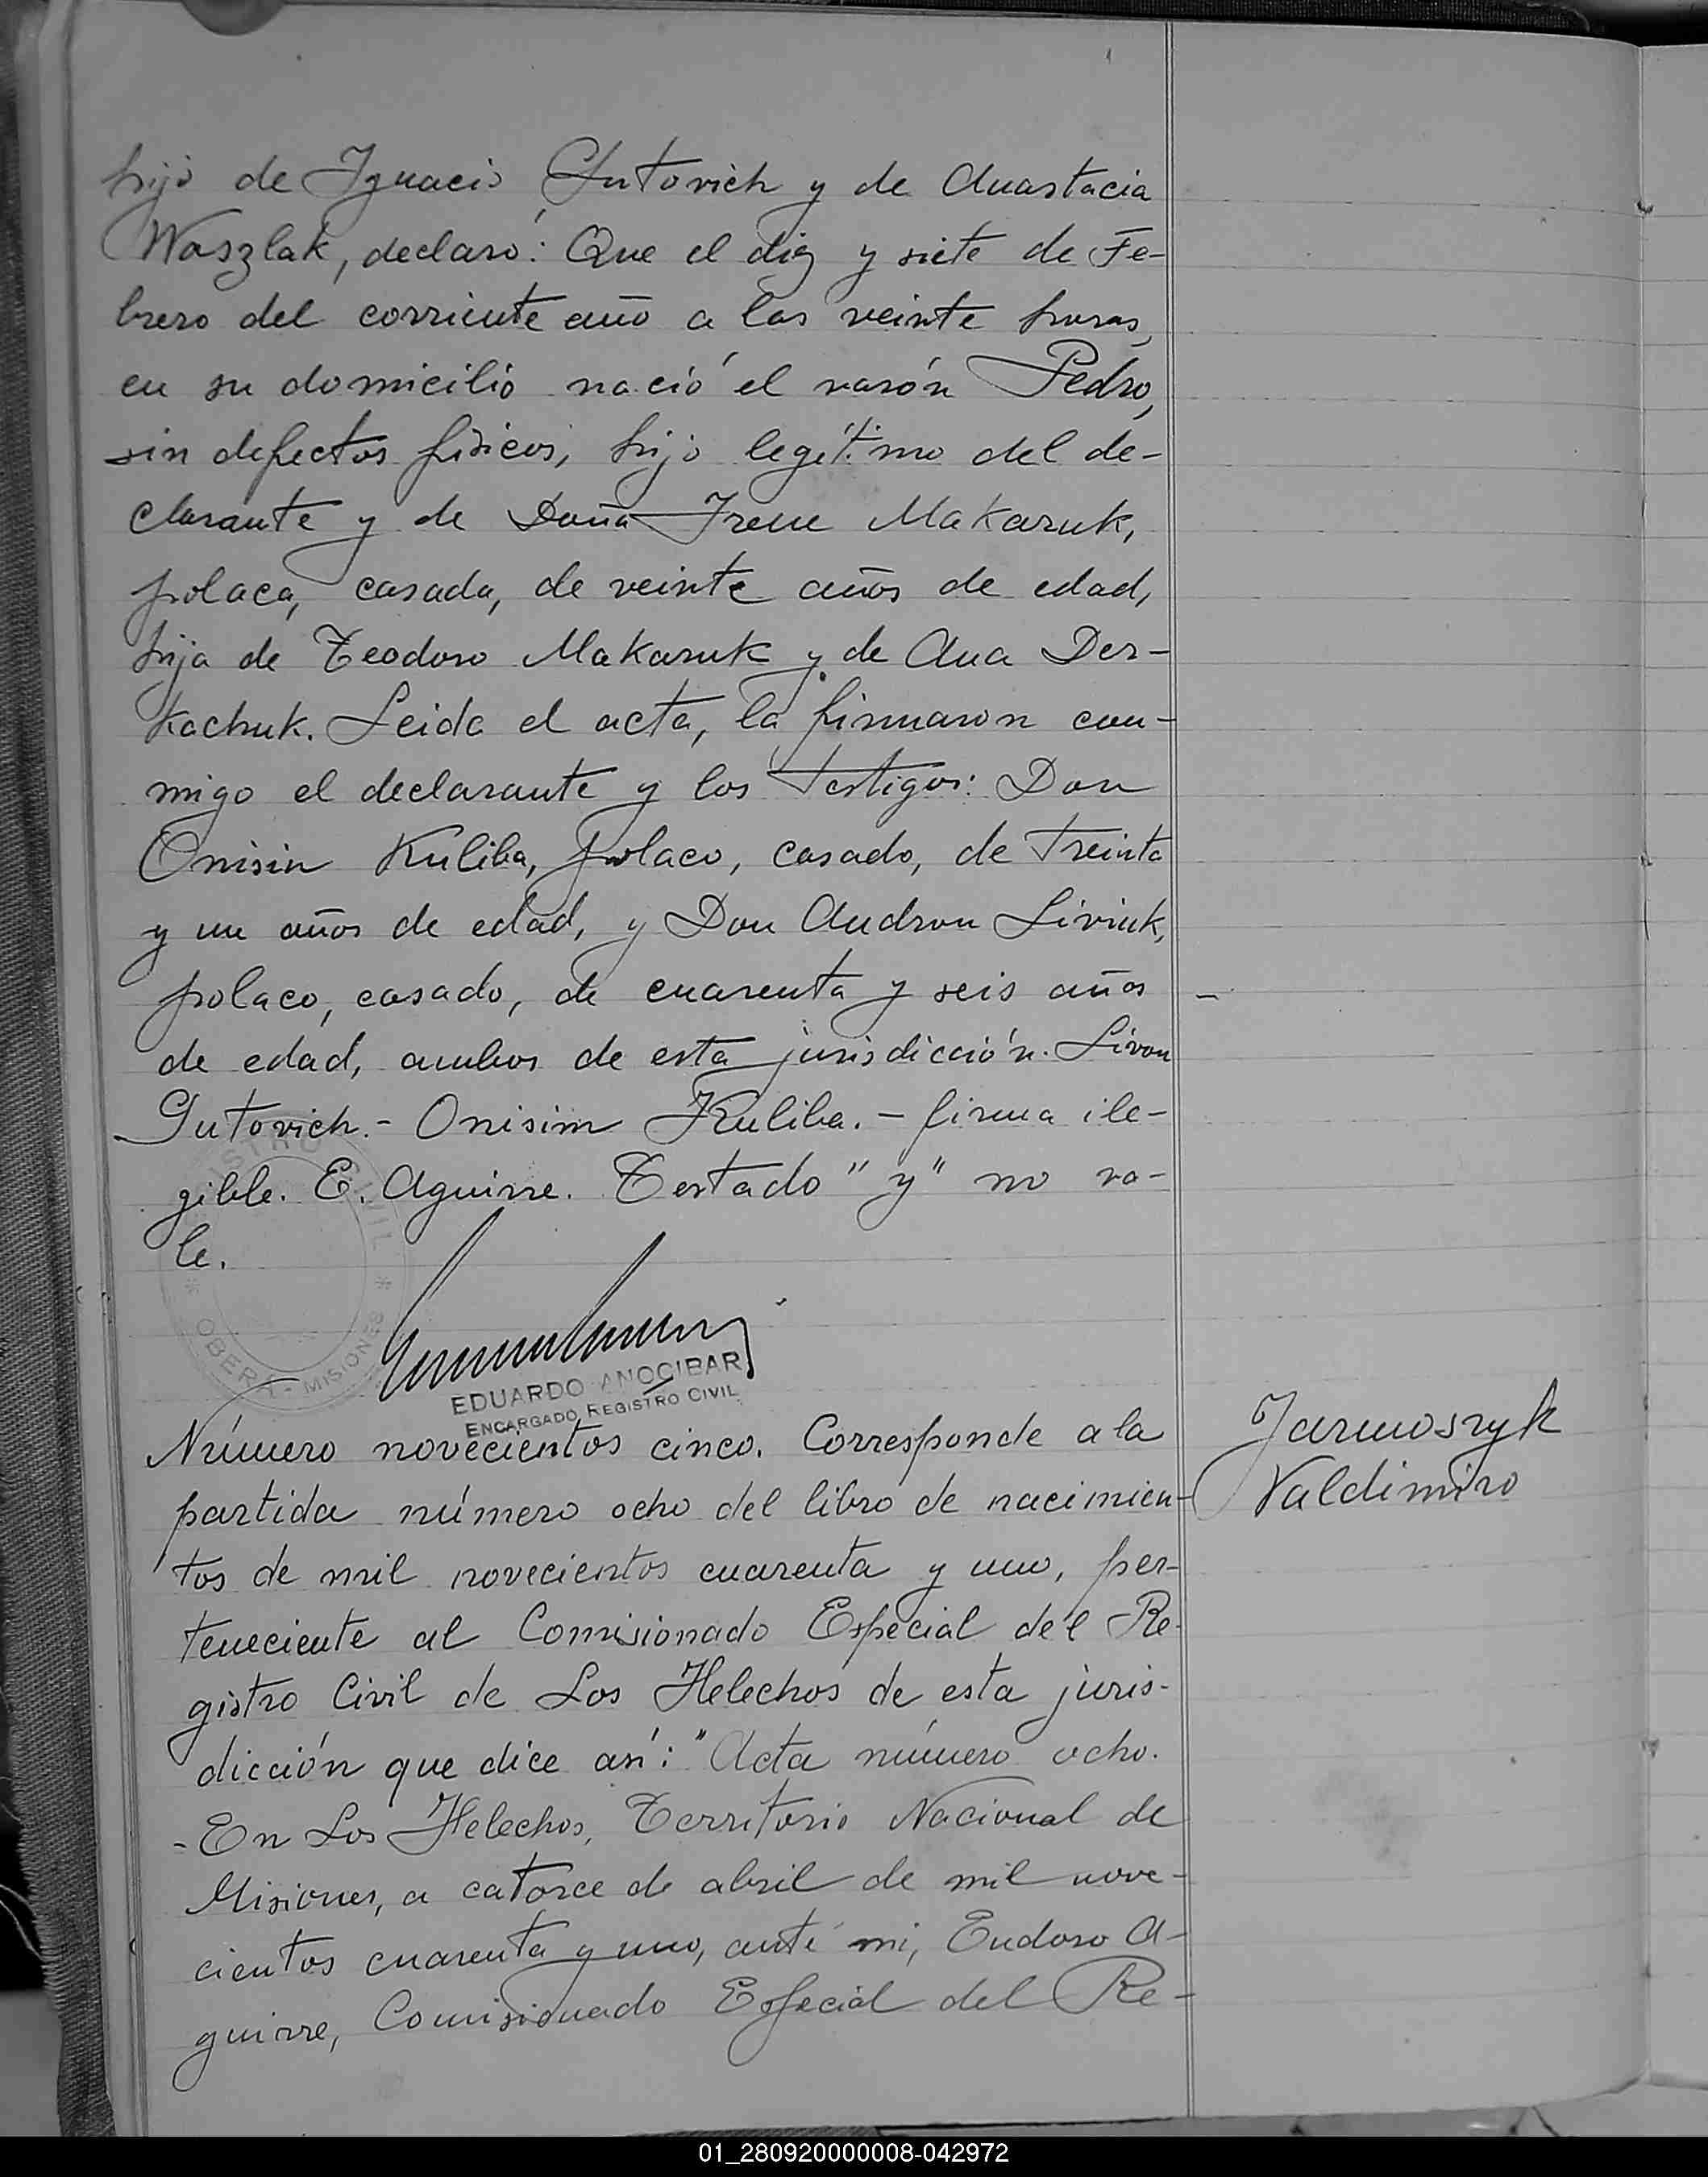 hijo de Ignacio Gutovich y de Anastacia
Waszlak, declaró: Que el diez y siete de Fe-
brero del corriente año a las veinte horas,
en su domicilio nació el varón Pedro,
sin defectos físicos, hijo legítimo del de-
clarante y de Doña Irene Makaruk,
polaca, casada, de veinte años de edad,
hija de Teodoro Makaruk y de Ana Der-
kachuk. Leida el acta, la firmaron con-
migo el declarante y los testigos: Don
Onisin Kuliba, polaco, casado, de treinta
y un años de edad, y Don Andron Liviuk,
polaco, casado, de cuarenta y seis años
de edad, ambos de esta jurisdicción. Livon
Gutovich.- Onisim Kuliba.- firma ile-
gible. E. Aguirre. Testado "y" no va-
le.
REGISTRO CIVIL
* OBERA - MISIONES *
EDUARDO ANOCIBAR
ENCARGADO REGISTRO CIVIL
Número novecientos cinco. Corresponde a la
partida número ocho del libro de nacimien-
tos de mil novecientos cuarenta y uno, per-
teneciente al Comisionado Especial del Re-
gistro Civil de Los Helechos de esta juris-
dicción que dice así: "Acta número ocho.
-En Los Helechos, Territorio Nacional de
Misiones, a catorce de abril de mil nove-
cientos cuarenta y uno, ante mi, Eudoro A-
guirre, Comisionado Especial del Re-
Jarmoszyk
Valdimiro
01_280920000008-042972